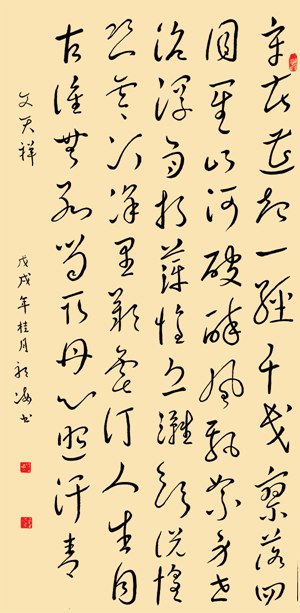 辛苦遭起一經干戈寥落四
周星山河破碎風飄絮身世
沉浮雨打萍惶恐灘頭說惶
恐零丁洋里嘆零丁人生自
古誰無死留取丹心照汗青
文天祥
戊戌年桂月書